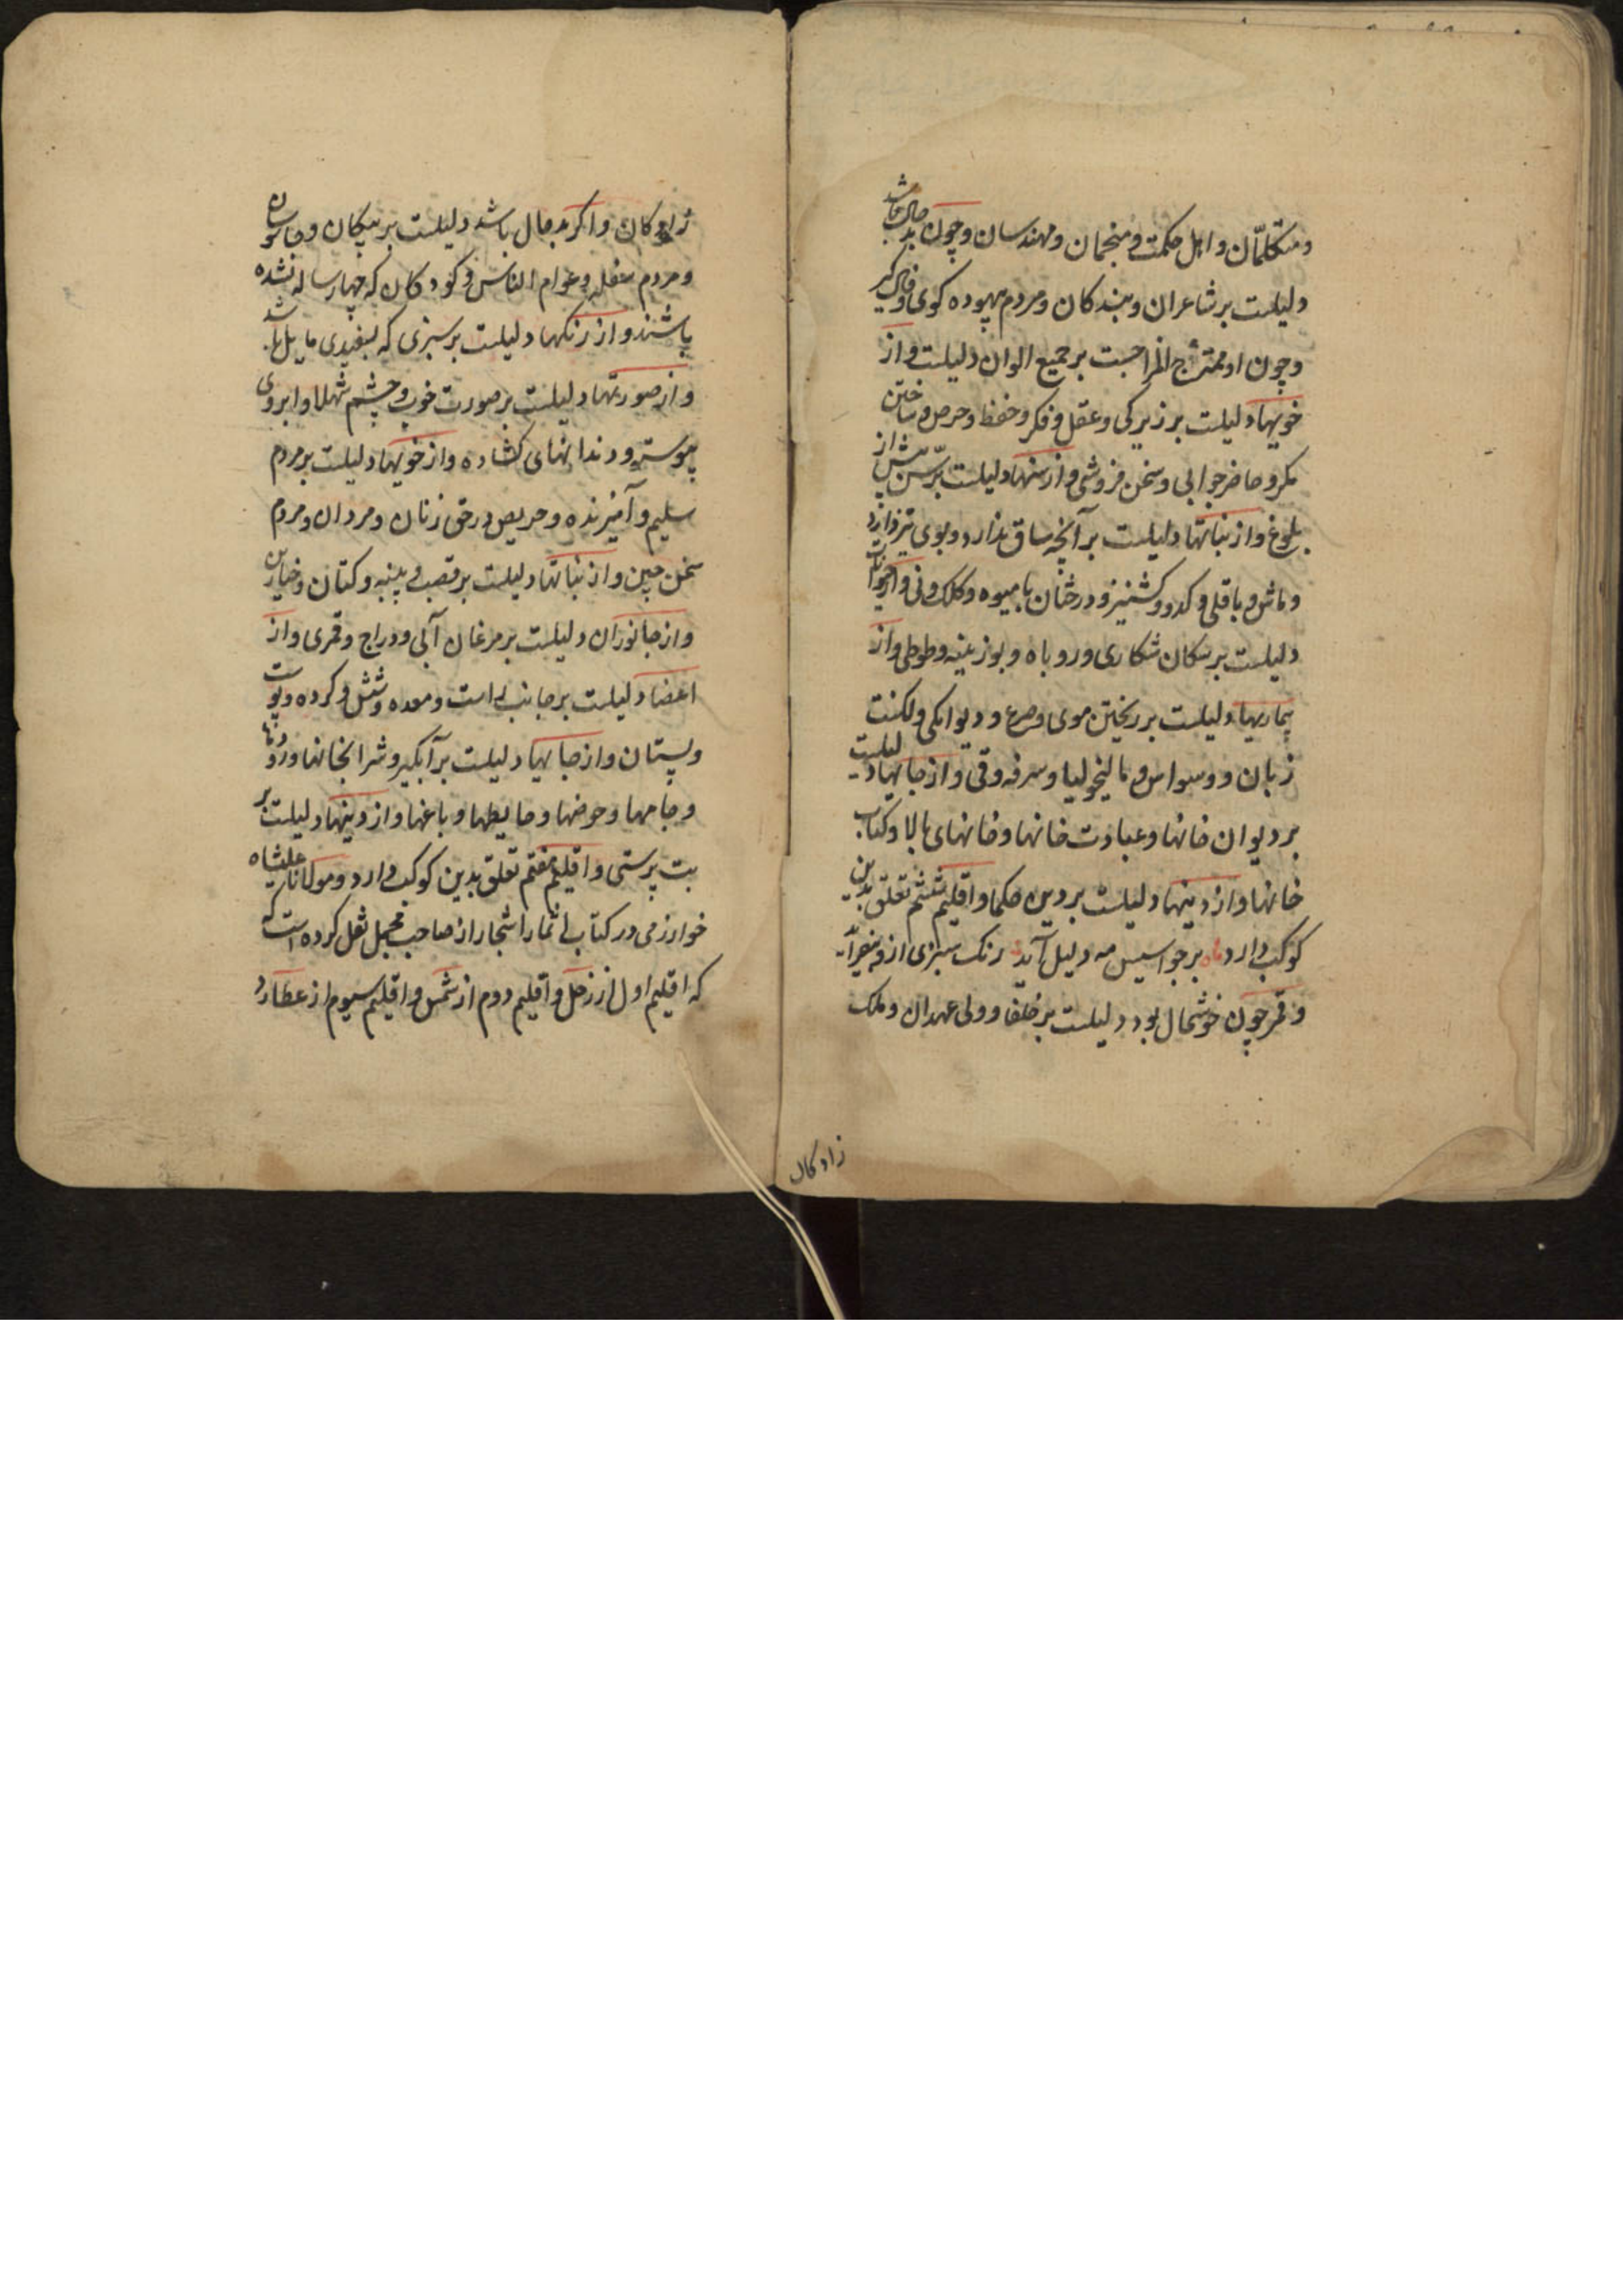 و متکلمّان و اهل حکمت و منجمان و مهندسان و چون بد حال باشد
دلیلست بر شاعران و بندکان و مردم بیهوده کوی و فال کیر
و چون او ممتزج المزاجست بر جمیع الوان دلیلست و از
خویها دلیلست بر زیرکی و عقل و فکر و حفظ و حرص و ساختن
مکر و حاضر جوابی و سخن فروشی و از سنها دلیلست بر سن پیش از
بلوغ و از نباتها دلیلست بر آنچه ساق ندارد و بوی تیز دارد
و ماش و باقلی و کدو و کشنیز و درختان با میوه و کلک و نی و از حیوانات
دلیلست بر سکان شکاری و روباه و بوزینه و طوطی و از
بیماریها دلیلست بر ریختن موی و صرع و دیوانکی و لکنت
زبان و وسواس و مالیخولیا و سرفه و قی و از جایها دلیلست
بر دیوان خانها و عبادت خانها و خانهای بالا و کتاب
خانها و از دینها دلیلست بر دین حکما و اقلیم ششم تعلق بدین
کوکب دارد ماه بر جواسیس مه دلیل آید رنک سبزی ازو
و قمر چون خوشحال بود دلیلست بر خلفا و ولی عهدان و ملک
زادکان
زادکان و اکر بد حال باشد دلیلست بر پیکان و جاسوسان
و مردم سفله و عوام الناس و کودکان که چهار ساله نشده
باشند و از رنکها دلیلست بر سبزی که بسفیدی مایل باشد
و از صورتها دلیلست بر صورت خوب و چشم شهلا و ابروی
پیوسته و دندانهای کشاده و از خویها دلیلست بر مردم
سلیم و آمیزنده و حریص در حق زنان و مردان و مردم
سخن چین و از نباتها دلیلست بر قصب و پنبه و کتان و خیارین
و از جانوران دلیلست بر مرغان آبی و دراج و قمری و از
اعضا دلیلست بر جانب راست و معده و شش و کرده و پوست
و پستان و از جایها دلیلست بر آبکیر و شرابخانها و رودها
و جامها و حوضها و حایطها و باغها و از دینها دلیلست بر
بت پرستی و اقلیم هفتم تعلق بدین کوکب دارد و مولانا علیشاه
خوارزمی در کتاب اثمار اشجار از صاحب مجمل نقل کرده است که
که اقلیم اول از زحل و اقلیم دوم از شمس و اقلیم سیوم از عطارد